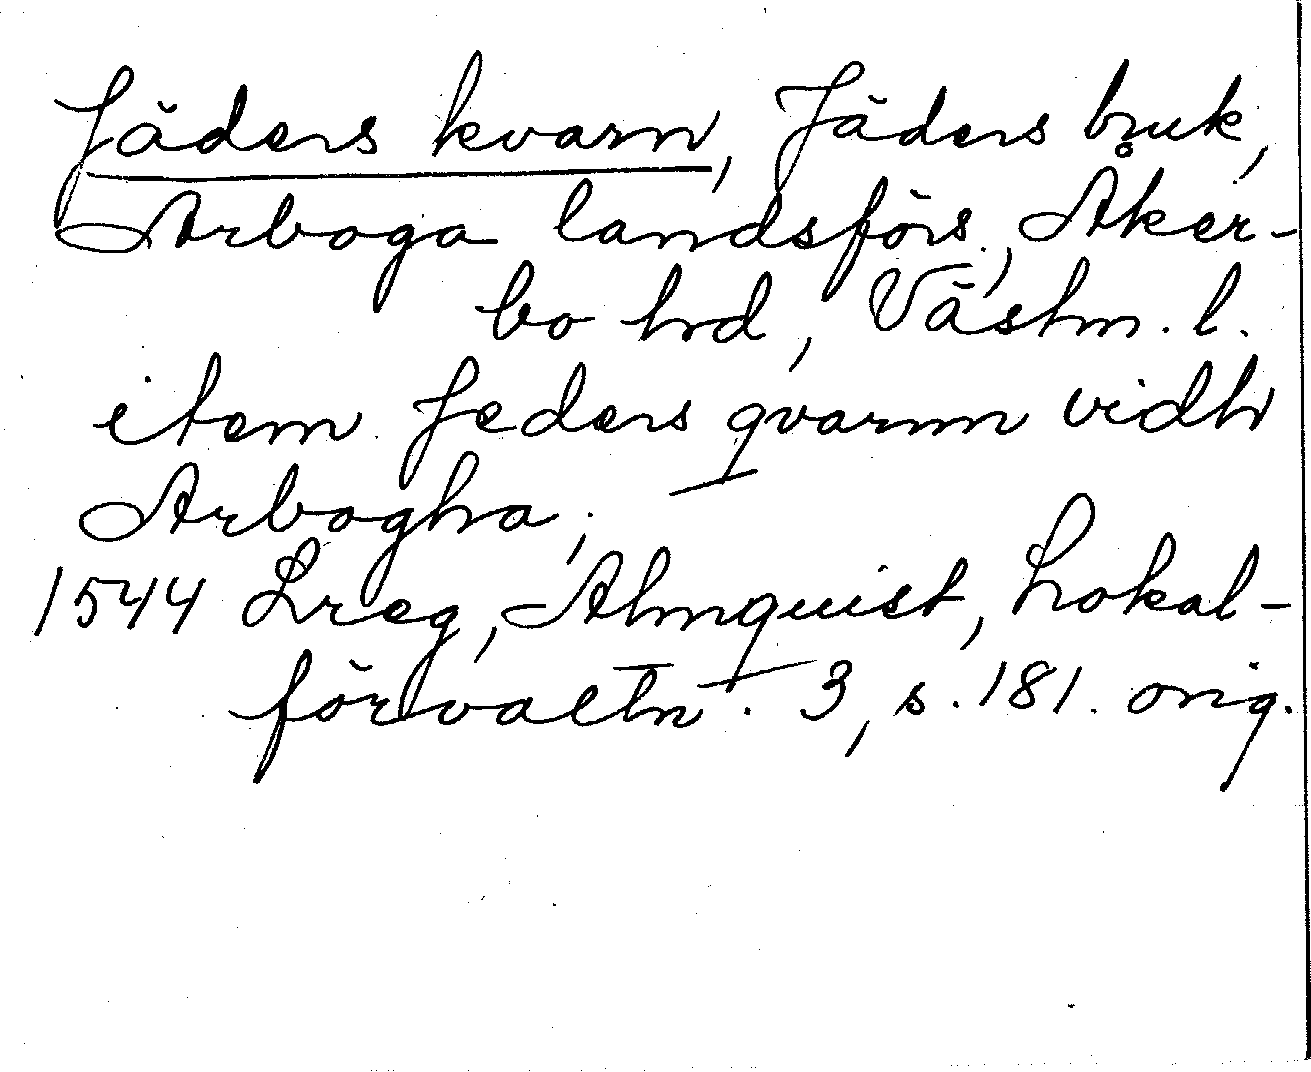 Jäders kvarn, Jäders bruk,
Arboga landsförs., Åker-
bo hrd, Västm. l.
item Jeders qvarnn vidh
Arbogha;
1544 Lreg, Almquist, Lokal-
förvaltn. 3, s. 181. orig.